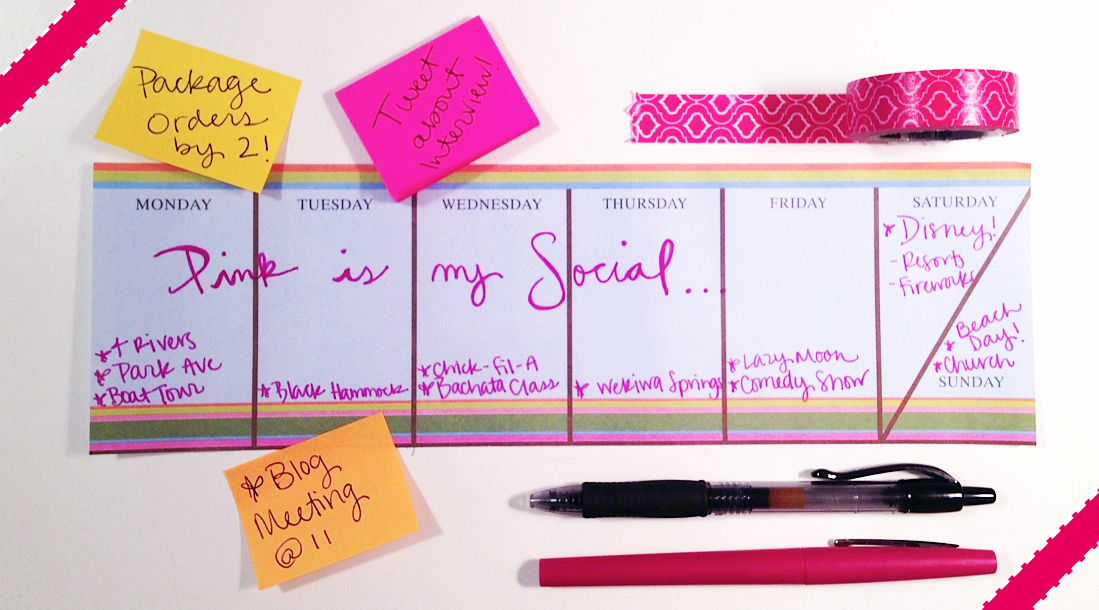 Package
Orders
by 2!
Tweet
about
Interview!
MONDAY TUESDAY WEDNESDAY THURSDAY FRIDAY SATURDAY
Pink is my Social...
* 4 Rivers
* Park Ave
* Boat Tour
* Black Hammock
* Chick-Fil-A
* Bachata Class
* Wekiwa Springs
* Lazy Moon
* Comedy Show
* Disney!
- Resorts
- Fireworks
* Beach
Day!
* Church
SUNDAY
* Blog
Meeting
@ 11